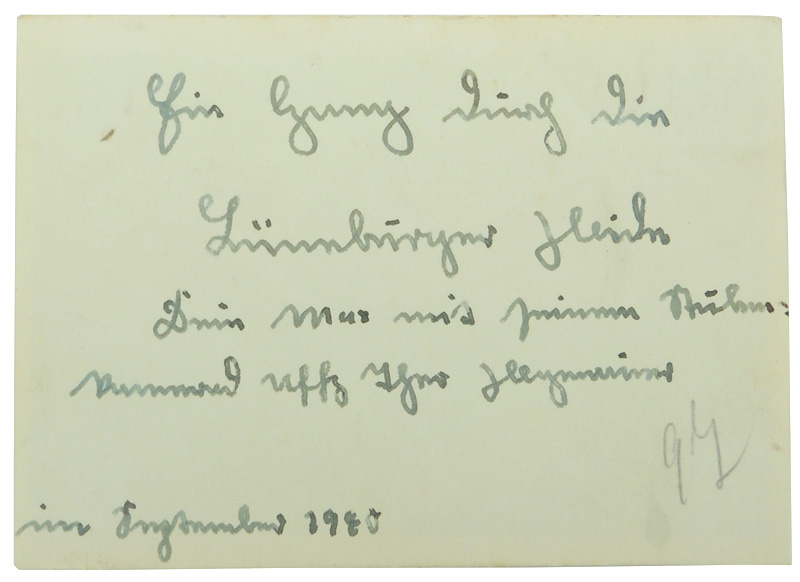 Ein Gang durch die
Lüneburger Heide
Dein Max mit seinem Stuben:
kamerad Uffz Theo
im September 1940